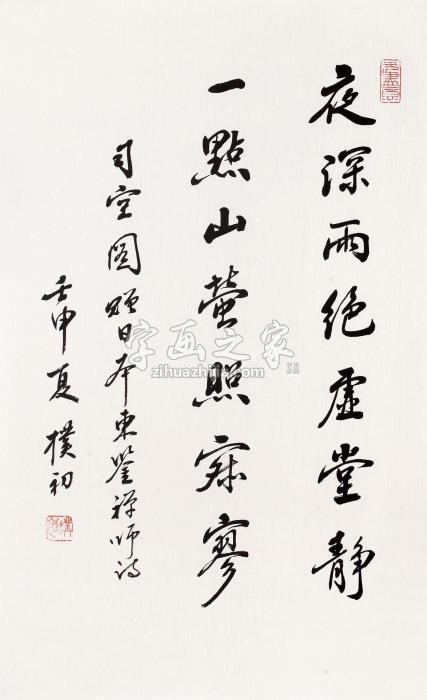 夜深雨絕虛堂靜
一點山螢照寂寥
司空圖贈日本東鑒禪師詩
壬申夏 樸初
字画之家
www.zihuazhijia.com